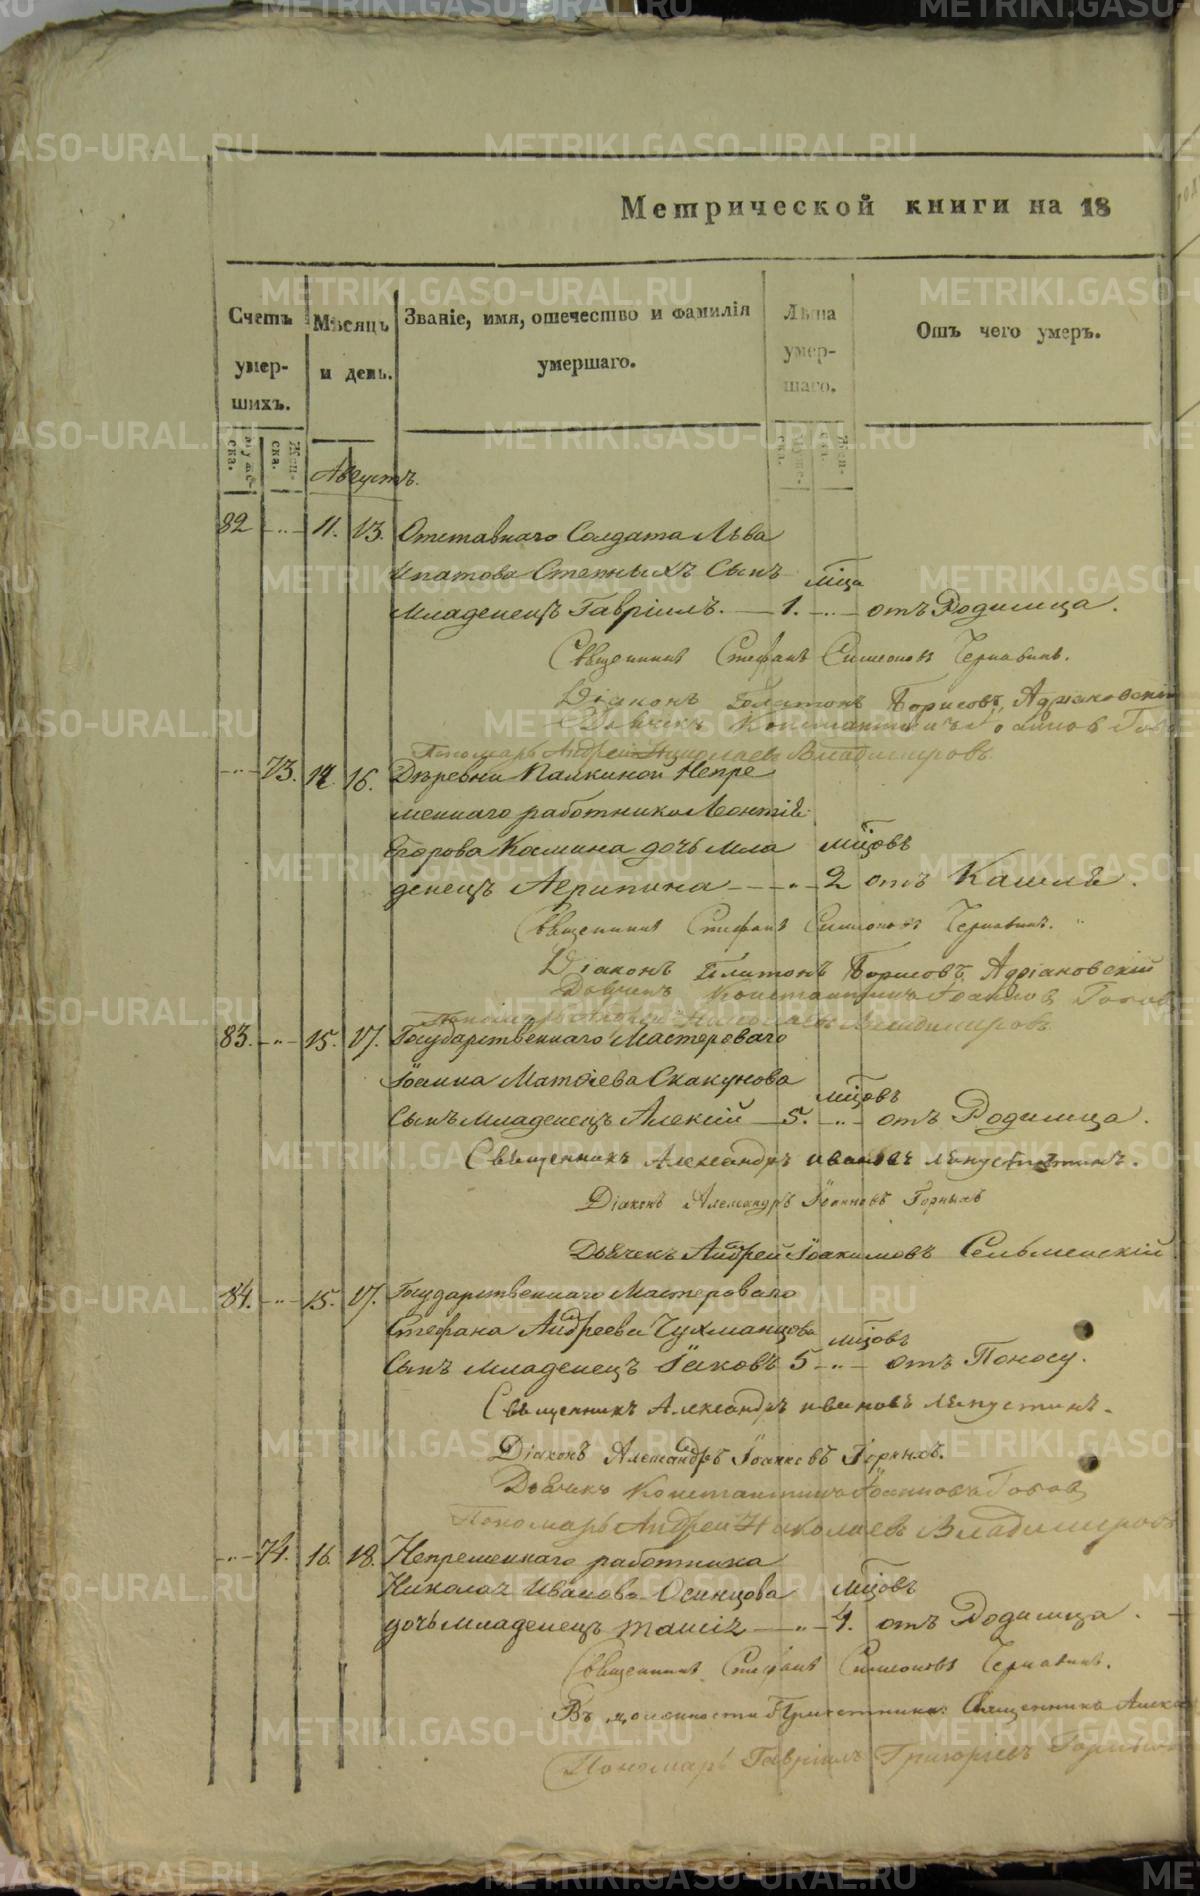 Метрической книги на 18
Счетъ умер- шихъ.
Мѣсяцъ и день.
Званіе, имя, отечество и фамилія умершаго.
Лѣта умер- шаго.
Отъ чего умеръ.
Муже- ска.
Жен- ска.
Муже- ска.
Жен- ска.
Августъ.
82 - " - 11. 13. Отставнаго Солдата Льва
Ипатова Степныхъ Сынъ мца
Младенецъ Гавріилъ. — 1. - " - отъ Родимца.
Священникъ Стефанъ Симеоновъ Чернавинъ.
Діаконъ Платонъ Борисовъ Адріановскій
Дьячекъ Константинъ Іоанновъ
Пономарь Андрей Николаевъ Владимировъ.
- " - 73. 14 16. Деревни Палкиной Непре
меннаго работника Леонтія
Егорова Космина дочь мла мцовъ
денецъ Агрипина - - " - 2 отъ Кашля.
Священникъ Стефанъ Симеоновъ Чернавинъ.
Діаконъ Платонъ Борисовъ Адріановскій
Дьячекъ Константинъ Іоанновъ
Пономарь Андрей Николаевъ Владимировъ
83. - " - 15. 17. Государственнаго Мастероваго
Іоанна Матѳіева Скакунова мцовъ
Сынъ младенецъ Алексій — 5. - " - отъ Родимца.
Священникъ Александръ Ивановъ
Діаконъ Александръ Іоанновъ Горныхъ
Дьячекъ Андрей Іоакимовъ Сельменскій
84. - " - 15. 17. Государственнаго Мастероваго
Стефана Андреева Чухманцова мцовъ
Сынъ младенецъ Іаковъ 5 - " - отъ Поносу.
Священникъ Александръ Ивановъ
Діаконъ Александръ Іоанновъ Горныхъ.
Дьячекъ Константинъ Іоанновъ
Пономарь Андрей Николаевъ Владимировъ
- " - 74. 16. 18. Непременнаго работника
Николая Иванова Осинцова мцовъ
дочь младенецъ — " - 4. отъ Родимца.
Священникъ Стефанъ Симеоновъ Чернавинъ.
Въ должности Причетника: Священникъ
Пономарь Гавріилъ Григорьевъ
METRIKI.GASO-URAL.RU